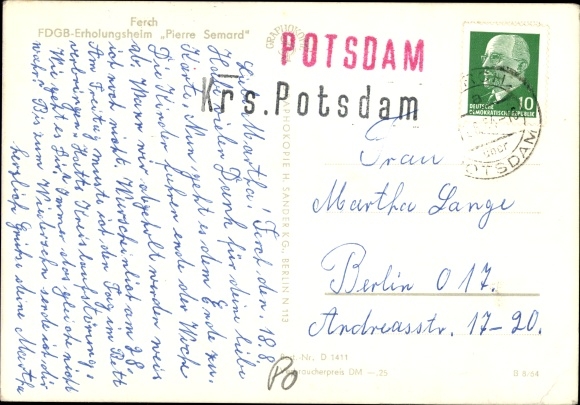 Ferch
FDGB-Erholungsheim „Pierre Semard"
Liebe Martha! Ferch den 18.8.
Habe vielen Dank für deine liebe
Karte. Nun geht es dem Ende zu.
Die Kinder fahren ende der Woche
ab. Wann wir abgeholt werden weis
ich noch nicht. Warscheinlich am 28.
Am Freitag mußte ich den Tag im Bett
verbringen. Hatte Kreislaufstörung.
Wie geht es Dir? Immer das gleiche nicht
wahr? Bis zum Wiedersehn sende ich dir
herzlich Grüße deine Martha
PHOKOPIE H. SANDER K G., BERLIN N 113
GRAPHOKOPIE
POTSDAM
Krs. Potsdam
DEUTSCHE
DEMOKRATISCHE REPUBLIK
10
POTSDAM
Frau
Martha Lange
Berlin O 17.
Andreasstr. 17-20.
Best.-Nr. D 1411
Verbraucherpreis DM —,25
B 8/64
PO